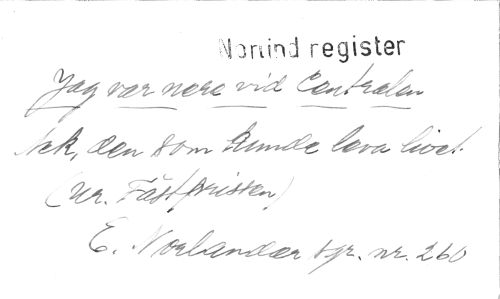 Norlind register
Jag var nere vid Centralen
Ack, den som kunde leva livet.
(ur. Fästfrissen)
E. Norlander sgr. nr. 260